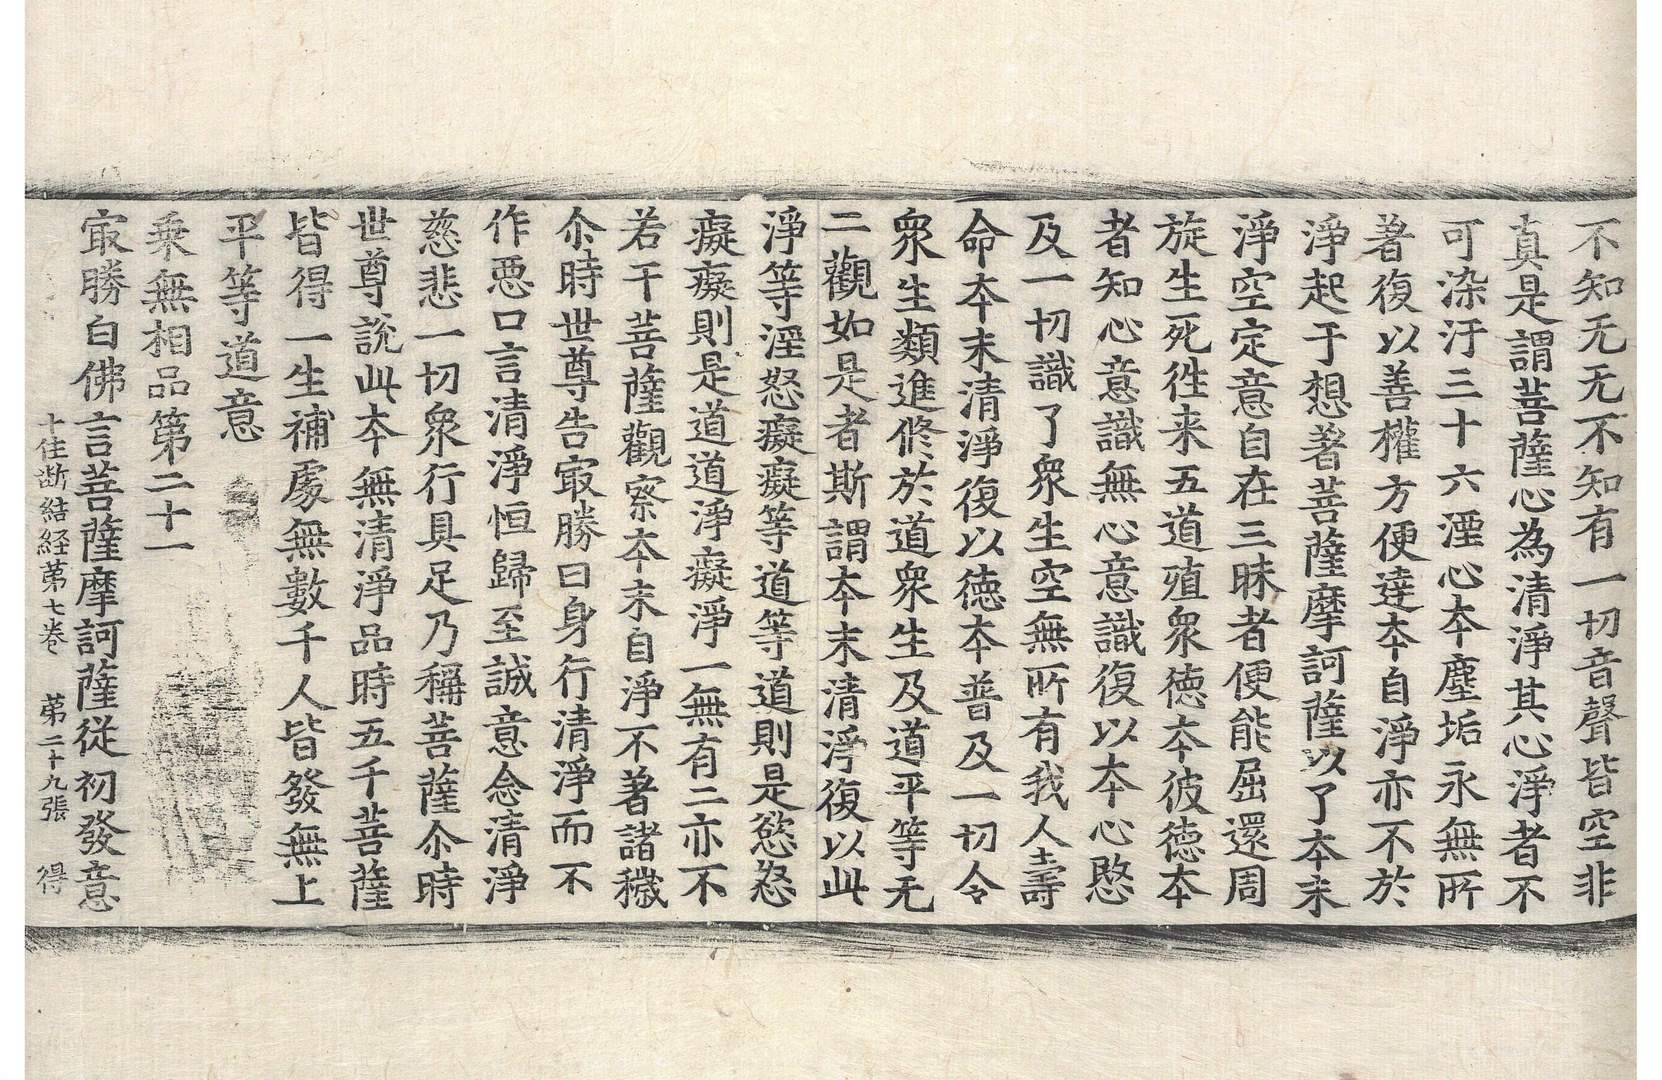 不知无无不知有一切音聲皆空非
真是謂菩薩心為清淨其心淨者不
可染汙三十六湮心夲塵垢永無所
著復以善權方便達夲自淨亦不於
淨起于想著菩薩摩訶薩以了夲末
淨空定意自在三昧者便能屈還周
旋生死徃来五道殖衆徳夲彼徳夲
者知心意識無心意識復以夲心愍
及一切識了衆生空無所有我人壽
命夲末清淨復以徳夲普及一切令
衆生類進修於道衆生及道平等无
二觀如是者斯謂夲末清淨復以此
淨等淫怒癡癡等道等道則是慾怒
癡癡則是道道淨癡淨一無有二亦不
若干菩薩觀察夲末自淨不著諸穢
尒時世尊告㝡勝曰身行清淨而不
作惡口言清淨恒歸至誠意念清淨
慈悲一切衆行具足乃稱菩薩尒時
世尊説此夲無清淨品時五千菩薩
皆得一生補處無數千人皆發無上
平等道意
乗無相品第二十一
㝡勝白佛言菩薩摩訶薩従初發意
十住断結経苐七巻 苐二十九張 得